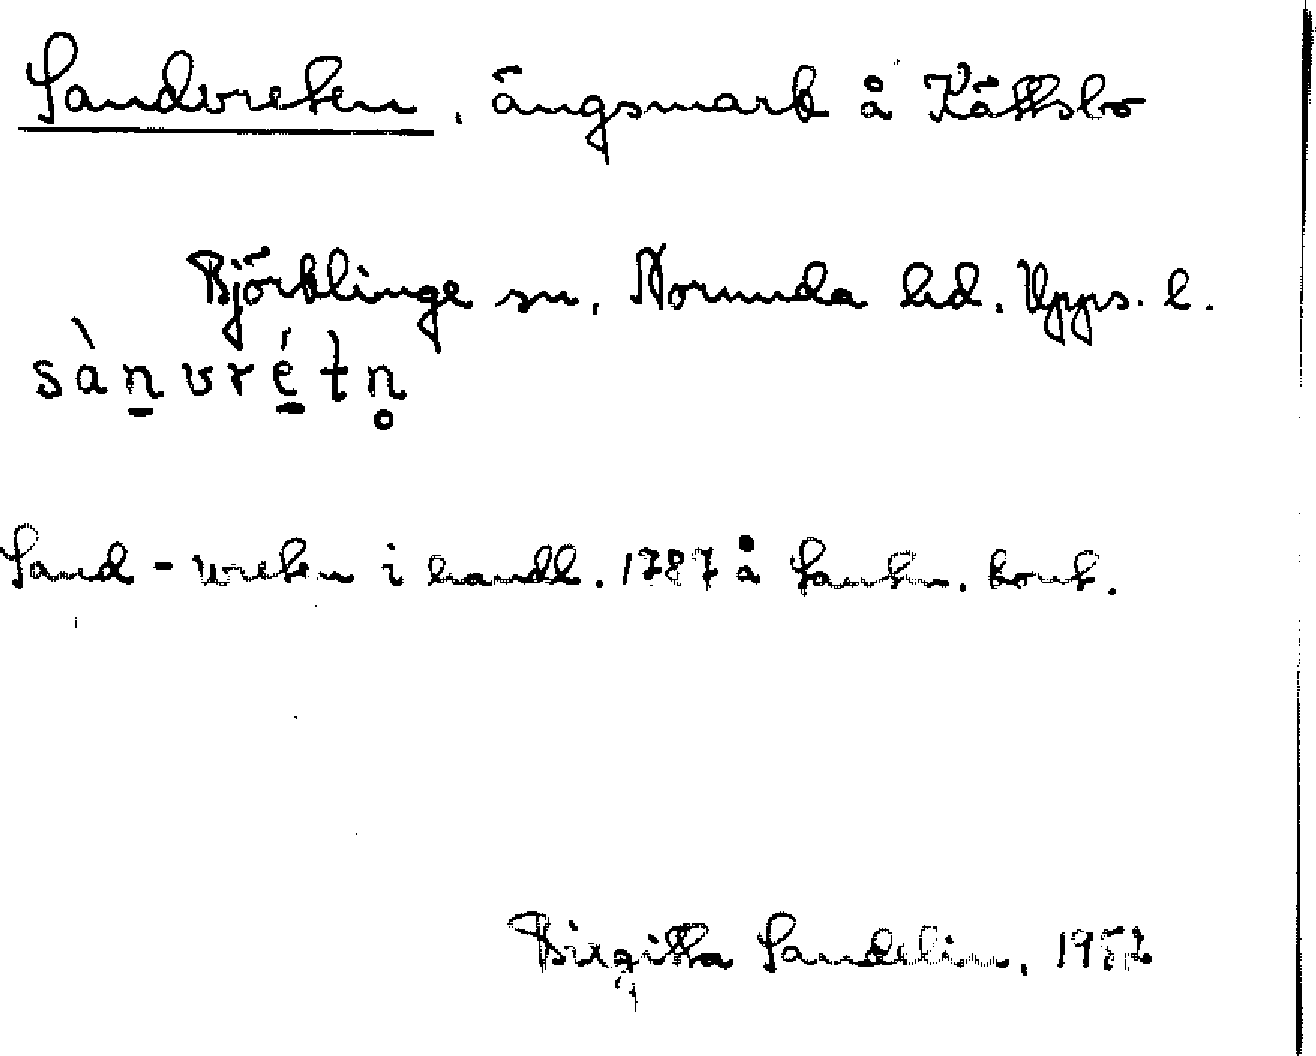 Sandvreten, ängsmark å Kättsbo
Björklinge sn, Norunda hd. Upps. l.
sànvrétn̥
Sand-vreten i handl. 1787 å Lantm. kont.
Birgitta Sandelin, 1952